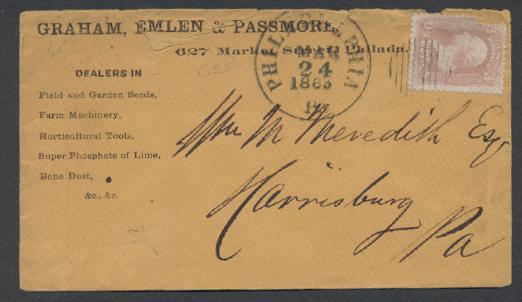 GRAHAM, EMLEN & PASSMORE,
627 Market Street, Philada.
PHILADELPHIA
MAR
24
1865
Pa
DEALERS IN
Field and Garden Seeds,
Farm Machinery,
Horticultural Tools,
Super Phosphate of Lime,
Bone Dust,
&c., &c.
Wm M Meredith Esq
Harrisburg
Pa